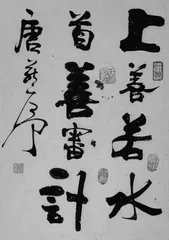 上善若水
首善審計
唐